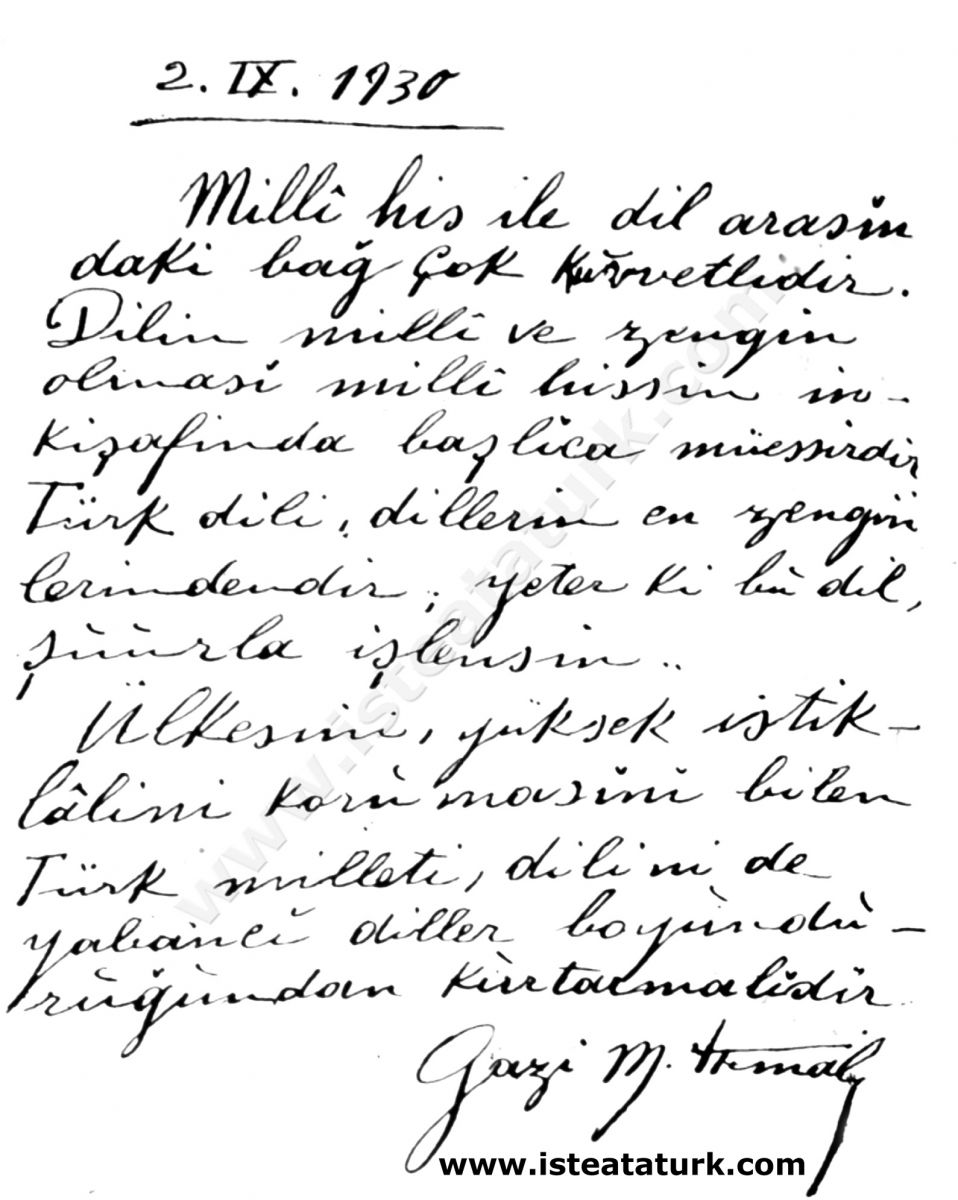 2. IX. 1930
Millî his ile dil arasın
daki bağ çok kuvvetlidir.
Dilin millî ve zengin
olması millî hissin in-
kişafında başlıca müessirdir
Türk dili, dillerin en zengin
lerindendir; yeter ki bu dil,
şuurla işlensin..
Ülkesini, yüksek istik-
lâlini korumasını bilen
Türk milleti, dilini de
yabancı diller boyundu-
ruğundan kurtarmalıdır
Gazi M. Kemal
www.isteataturk.com
www.isteataturk.com